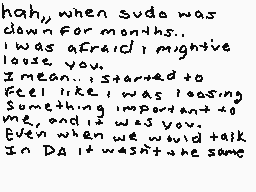 hah,, when sudo was
down for months..
i was afraid i might've
loose you.
I mean.. i started to
feel like i was loosing
something important to
me, and it was you.
Even when we would talk
In DA it wasn't the same